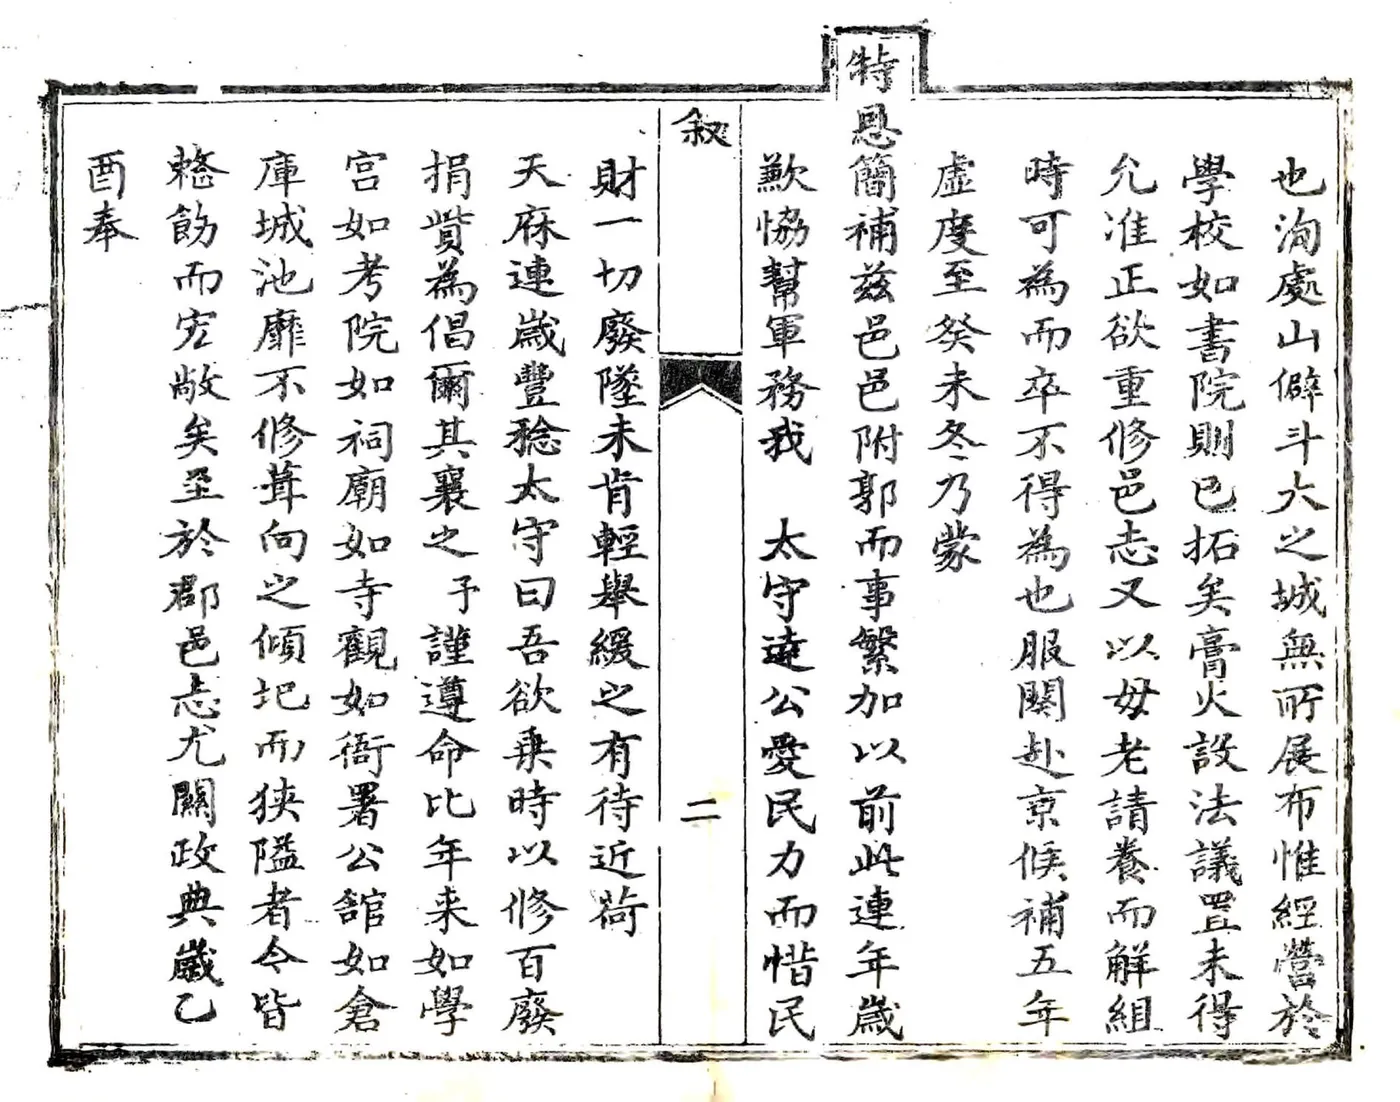 也洵處山僻斗大之城無所展布惟經營於
學校如書院則已拓矣膏火設法議置未得
允准正欲重修邑志又以母老請養而解組
時可為而卒不得為也服闋赴京候補五年
虛度至癸未冬乃蒙
特恩簡補茲邑邑附郭而事繁加以前此連年歲
歉恊幫軍務我 太守達公愛民力而惜民
叙
二
財一切廢墜未肯輕舉緩之有待近荷
天庥連歲豐稔太守曰吾欲乗時以修百廢
捐貲為倡爾其襄之予謹遵命比年来如學
宮如考院如祠廟如寺觀如衙署公舘如倉
庫城池靡不修葺向之傾圮而狹隘者今皆
整飭而宏敞矣至於郡邑志尤關政典歲乙
酉奉